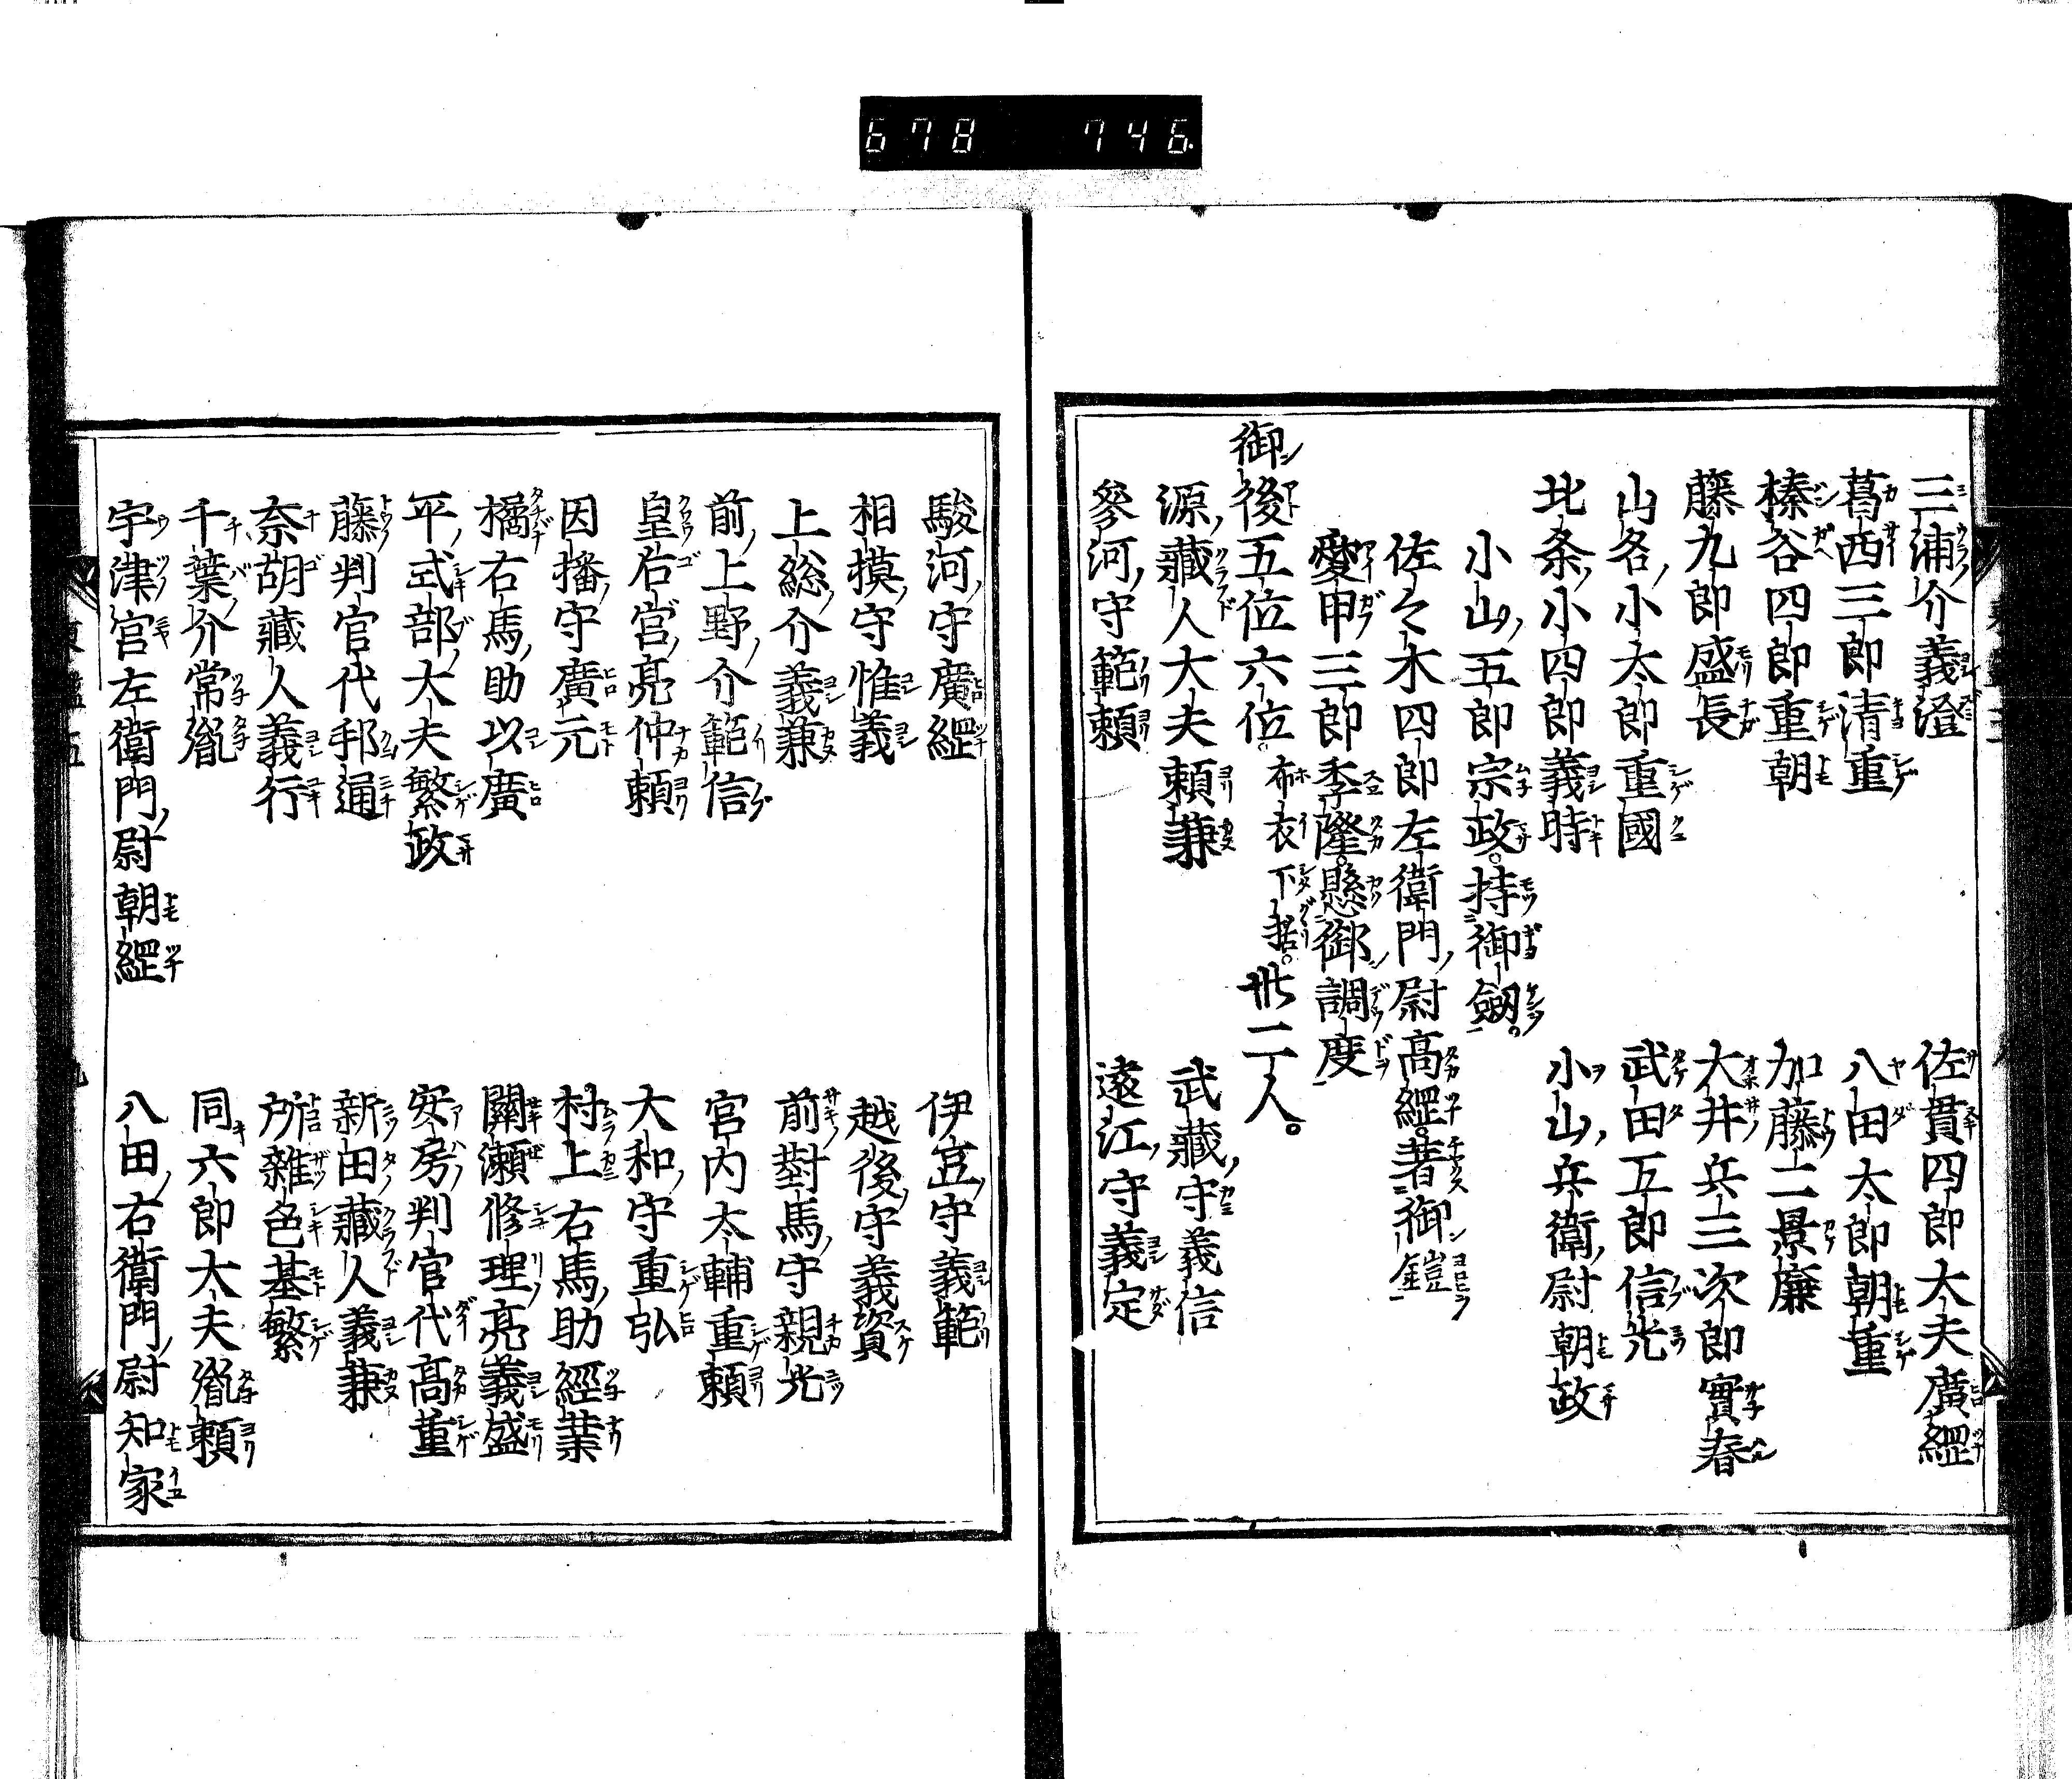 678 746
三浦介義澄 佐貫四郎大夫廣經
葛西三郎清重 八田太郎朝重
榛谷四郎重朝 加藤二景廉
藤九郎盛長 大井兵三次郎實春
山名小太郎重國 武田五郎信光
北条小四郎義時 小山兵衛尉朝政
小山五郎宗政。持御劔。
佐々木四郎左衛門尉高經。著御鎧
愛甲三郎季隆。懸御調度
御後五位六位。布衣下括。卅二人。
源藏人大夫頼兼 武藏守義信
參河守範頼 遠江守義定
駿河守廣經 伊豆守義範
相摸守惟義 越後守義資
上総介義兼 前對馬守親光
前上野介範信 宮内大輔重頼
皇后宮亮仲頼 大和守重弘
因播守廣元 村上右馬助經業
橘右馬助以廣 關瀬修理亮義盛
平式部大夫繁政 安房判官代髙重
藤判官代邦通 新田藏人義兼
奈胡藏人義行 所雜色基繁
千葉介常胤 同六郎大夫胤頼
宇津宮左衛門尉朝經 八田右衛門尉知家